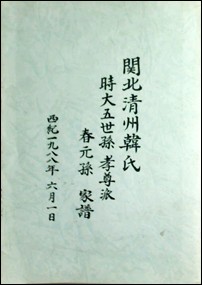 関北清州韓氏
時大五世孫 孝尊派
春元孫 家譜
西紀一九八八年 六月一日